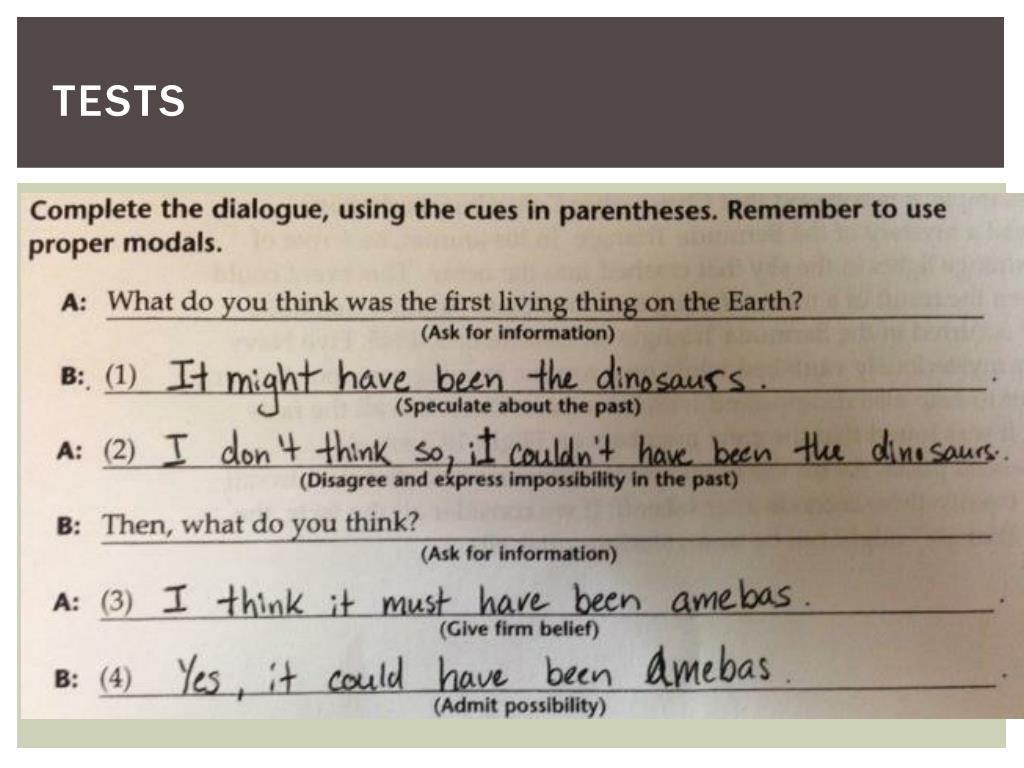 TESTS
Complete the dialogue, using the cues in parentheses. Remember to use
proper modals.
A: What do you think was the first living thing on the Earth?
(Ask for information)
B: (1) It might have been the dinosaurs.
(Speculate about the past)
A: (2) I don't think so, it couldn't have been the dinosaurs.
(Disagree and express impossibility in the past)
B: Then, what do you think?
(Ask for information)
A: (3) I think it must have been amebas.
(Give firm belief)
B: (4) Yes, it could have been amebas.
(Admit possibility)